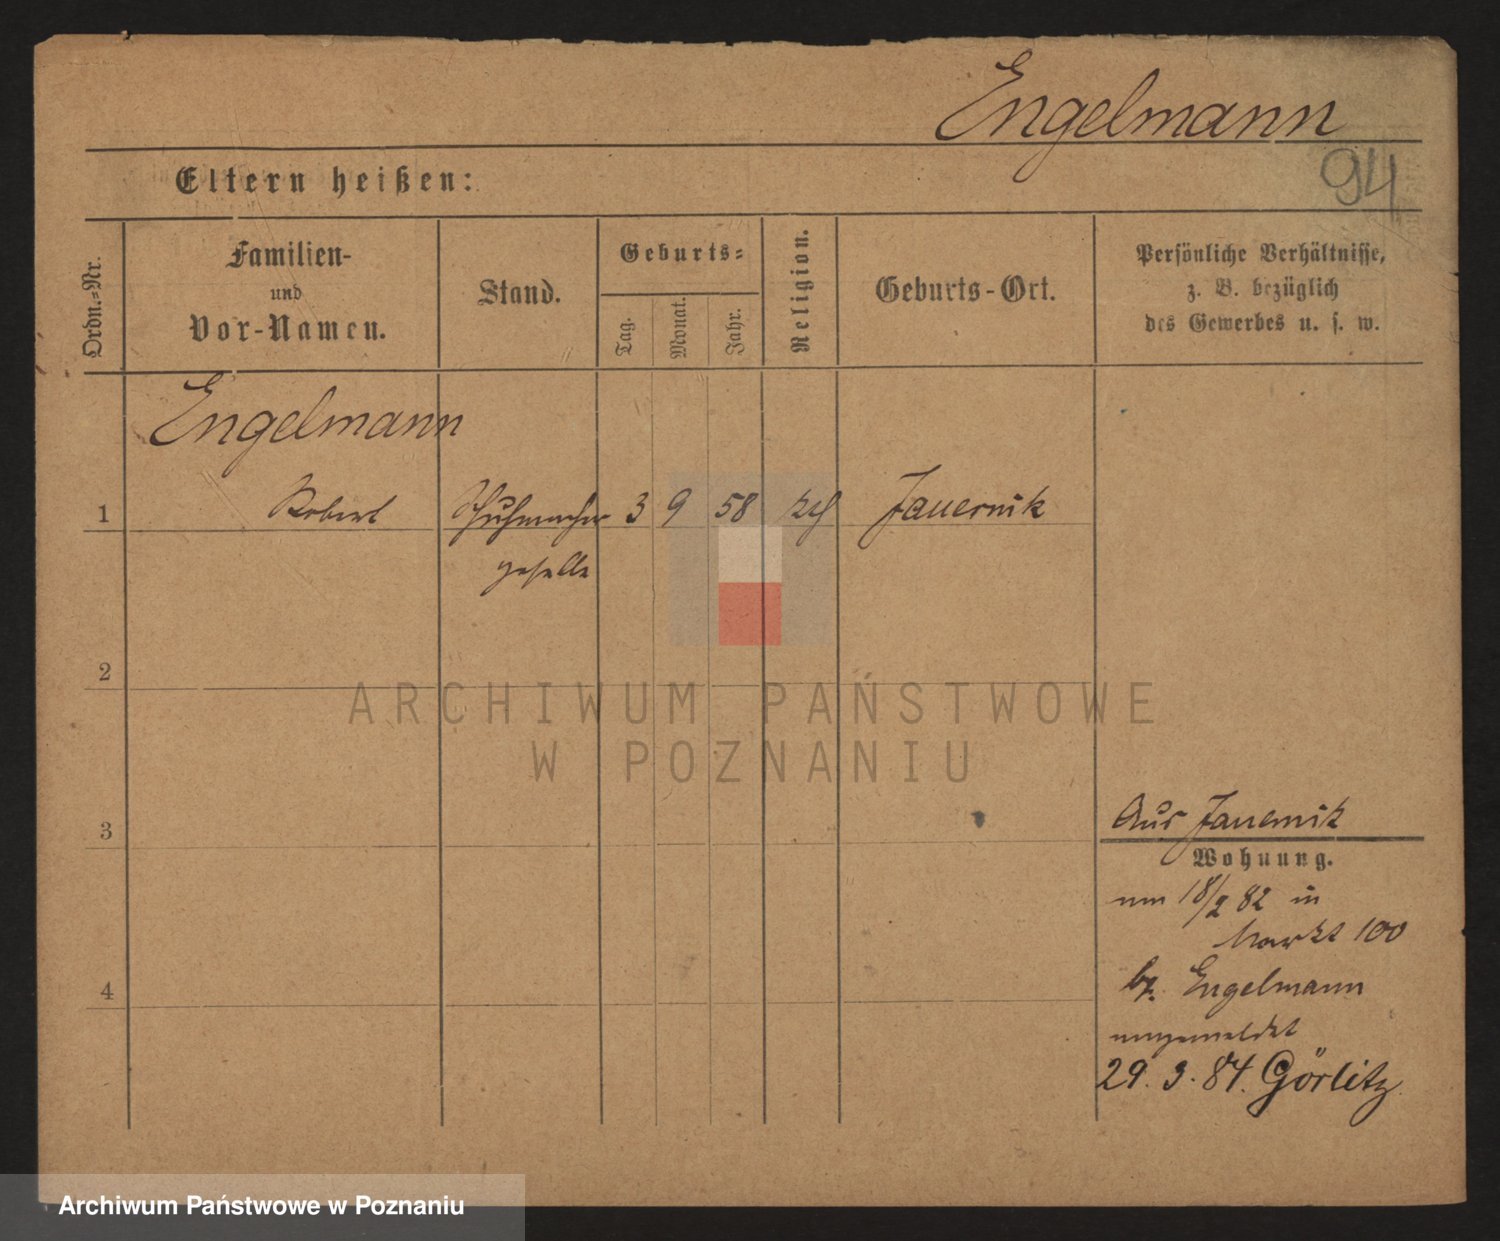 Engelmann
94
Eltern heißen:
Ordn.-Nr.
Familien-
und
Vor-Namen.
Stand.
Geburts-
Tag.
Monat.
Jahr.
Religion.
Geburts-Ort.
Persönliche Verhältnisse,
z. B. bezüglich
des Gewerbes u. s. w.
Engelmann
1 Robert Schuhmacher 3 9 58 Jauernik
geselle
2
ARCHIWUM PAŃSTWOWE
W POZNANIU
3
Aus Jauernik
Wohnung.
am 18/2 82 in
Markt 100
bz. Engelmann
4
angemeldet
29. 3. 84. Görlitz
Archiwum Państwowe w Poznaniu